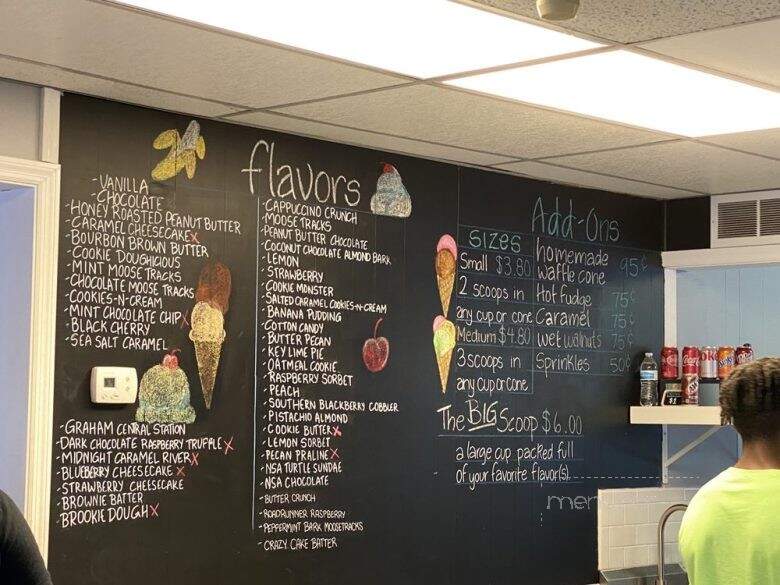 flavors
-VANILLA
-CHOCOLATE
-HONEY ROASTED PEANUT BUTTER
-CARAMEL CHEESECAKE x
-BOURBON BROWN BUTTER
-COOKIE DOUGHICIOUS
-MINT MOOSE TRACKS
-CHOCOLATE MOOSE TRACKS
-COOKIES-N-CREAM
-MINT CHOCOLATE CHIP x
-BLACK CHERRY
-SEA SALT CARAMEL
-GRAHAM CENTRAL STATION
-DARK CHOCOLATE RASPBERRY TRUFFLE x
-MIDNIGHT CARAMEL RIVER x
-BLUEBERRY CHEESECAKE x x
-STRAWBERRY CHEESECAKE
-BROWNIE BATTER
-BROOKIE DOUGH x
-CAPPUCCINO CRUNCH
-MOOSE TRACKS
-PEANUT BUTTER CHOCOLATE
-COCONUT CHOCOLATE ALMOND BARK
-LEMON
-STRAWBERRY
-COOKIE MONSTER
-SALTED CARAMEL COOKIES-N-CREAM
-BANANA PUDDING
-COTTON CANDY
-BUTTER PECAN
-KEY LIME PIE
-OATMEAL COOKIE
-RASPBERRY SORBET
-PEACH
-SOUTHERN BLACKBERRY COBBLER
-PISTACHIO ALMOND
-COOKIE BUTTER x
-LEMON SORBET
-PECAN PRALINE x
-NSA TURTLE SUNDAE
-NSA CHOCOLATE
-BUTTER CRUNCH
-ROADRUNNER RASPBERRY
-PEPPERMINT BARK MOOSETRACKS
-CRAZY CAKE BATTER
SIZES
Small $3.80
2 scoops in
any cup or cone
Medium $4.80
3 scoops in
any cup or cone
Add-Ons
homemade
waffle cone 95¢
Hot fudge 75¢
Caramel 75¢
wet walnuts 75¢
Sprinkles 50¢
The BIG Scoop $6.00
a large cup packed full
of your favorite flavor(s).
men